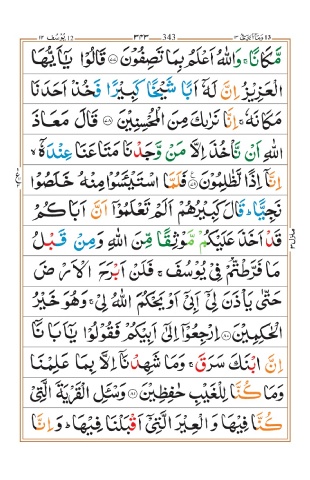 يوسف ١٢ 343 ٣٤٣ وما ابرئ ١٣
مَّكَانًا ۚ وَاللّٰهُ اَعْلَمُ بِمَا تَصِفُوْنَ ﴿۷۷﴾ قَالُوْا يٰۤاَيُّهَا
الْعَزِيْزُ اِنَّ لَهٗۤ اَبًا شَيْخًا كَبِيْرًا فَخُذْ اَحَدَنَا
مَكَانَهٗ ۚ اِنَّا نَرٰىكَ مِنَ الْمُحْسِنِيْنَ ﴿۷۸﴾ قَالَ مَعَاذَ
اللّٰهِ اَنْ نَّاْخُذَ اِلَّا مَنْ وَّجَدْنَا مَتَاعَنَا عِنْدَهٗۤ ۙ
اِنَّاۤ اِذًا لَّظٰلِمُوْنَ ﴿۷۹﴾ فَلَمَّا اسْتَيْـَٔسُوْا مِنْهُ خَلَصُوْا
نَجِيًّا ؕ قَالَ كَبِيْرُهُمْ اَلَمْ تَعْلَمُوْۤا اَنَّ اَبَاكُمْ
قَدْ اَخَذَ عَلَيْكُمْ مَّوْثِقًا مِّنَ اللّٰهِ وَمِنْ قَبْلُ
مَا فَرَّطْتُّمْ فِيْ يُوْسُفَ ۚ فَلَنْ اَبْرَحَ الْاَرْضَ
حَتّٰى يَاْذَنَ لِيْۤ اَبِيْۤ اَوْ يَحْكُمَ اللّٰهُ لِيْ ۚ وَهُوَ خَيْرُ
الْحٰكِمِيْنَ ﴿۸۰﴾ اِرْجِعُوْۤا اِلٰۤى اَبِيْكُمْ فَقُوْلُوْا يٰۤاَبَانَاۤ
اِنَّ ابْنَكَ سَرَقَ ۚ وَمَا شَهِدْنَاۤ اِلَّا بِمَا عَلِمْنَا
وَمَا كُنَّا لِلْغَيْبِ حٰفِظِيْنَ ﴿۸۱﴾ وَسْـَٔلِ الْقَرْيَةَ الَّتِيْ
كُنَّا فِيْهَا وَالْعِيْرَ الَّتِيْۤ اَقْبَلْنَا فِيْهَا ؕ وَاِنَّا